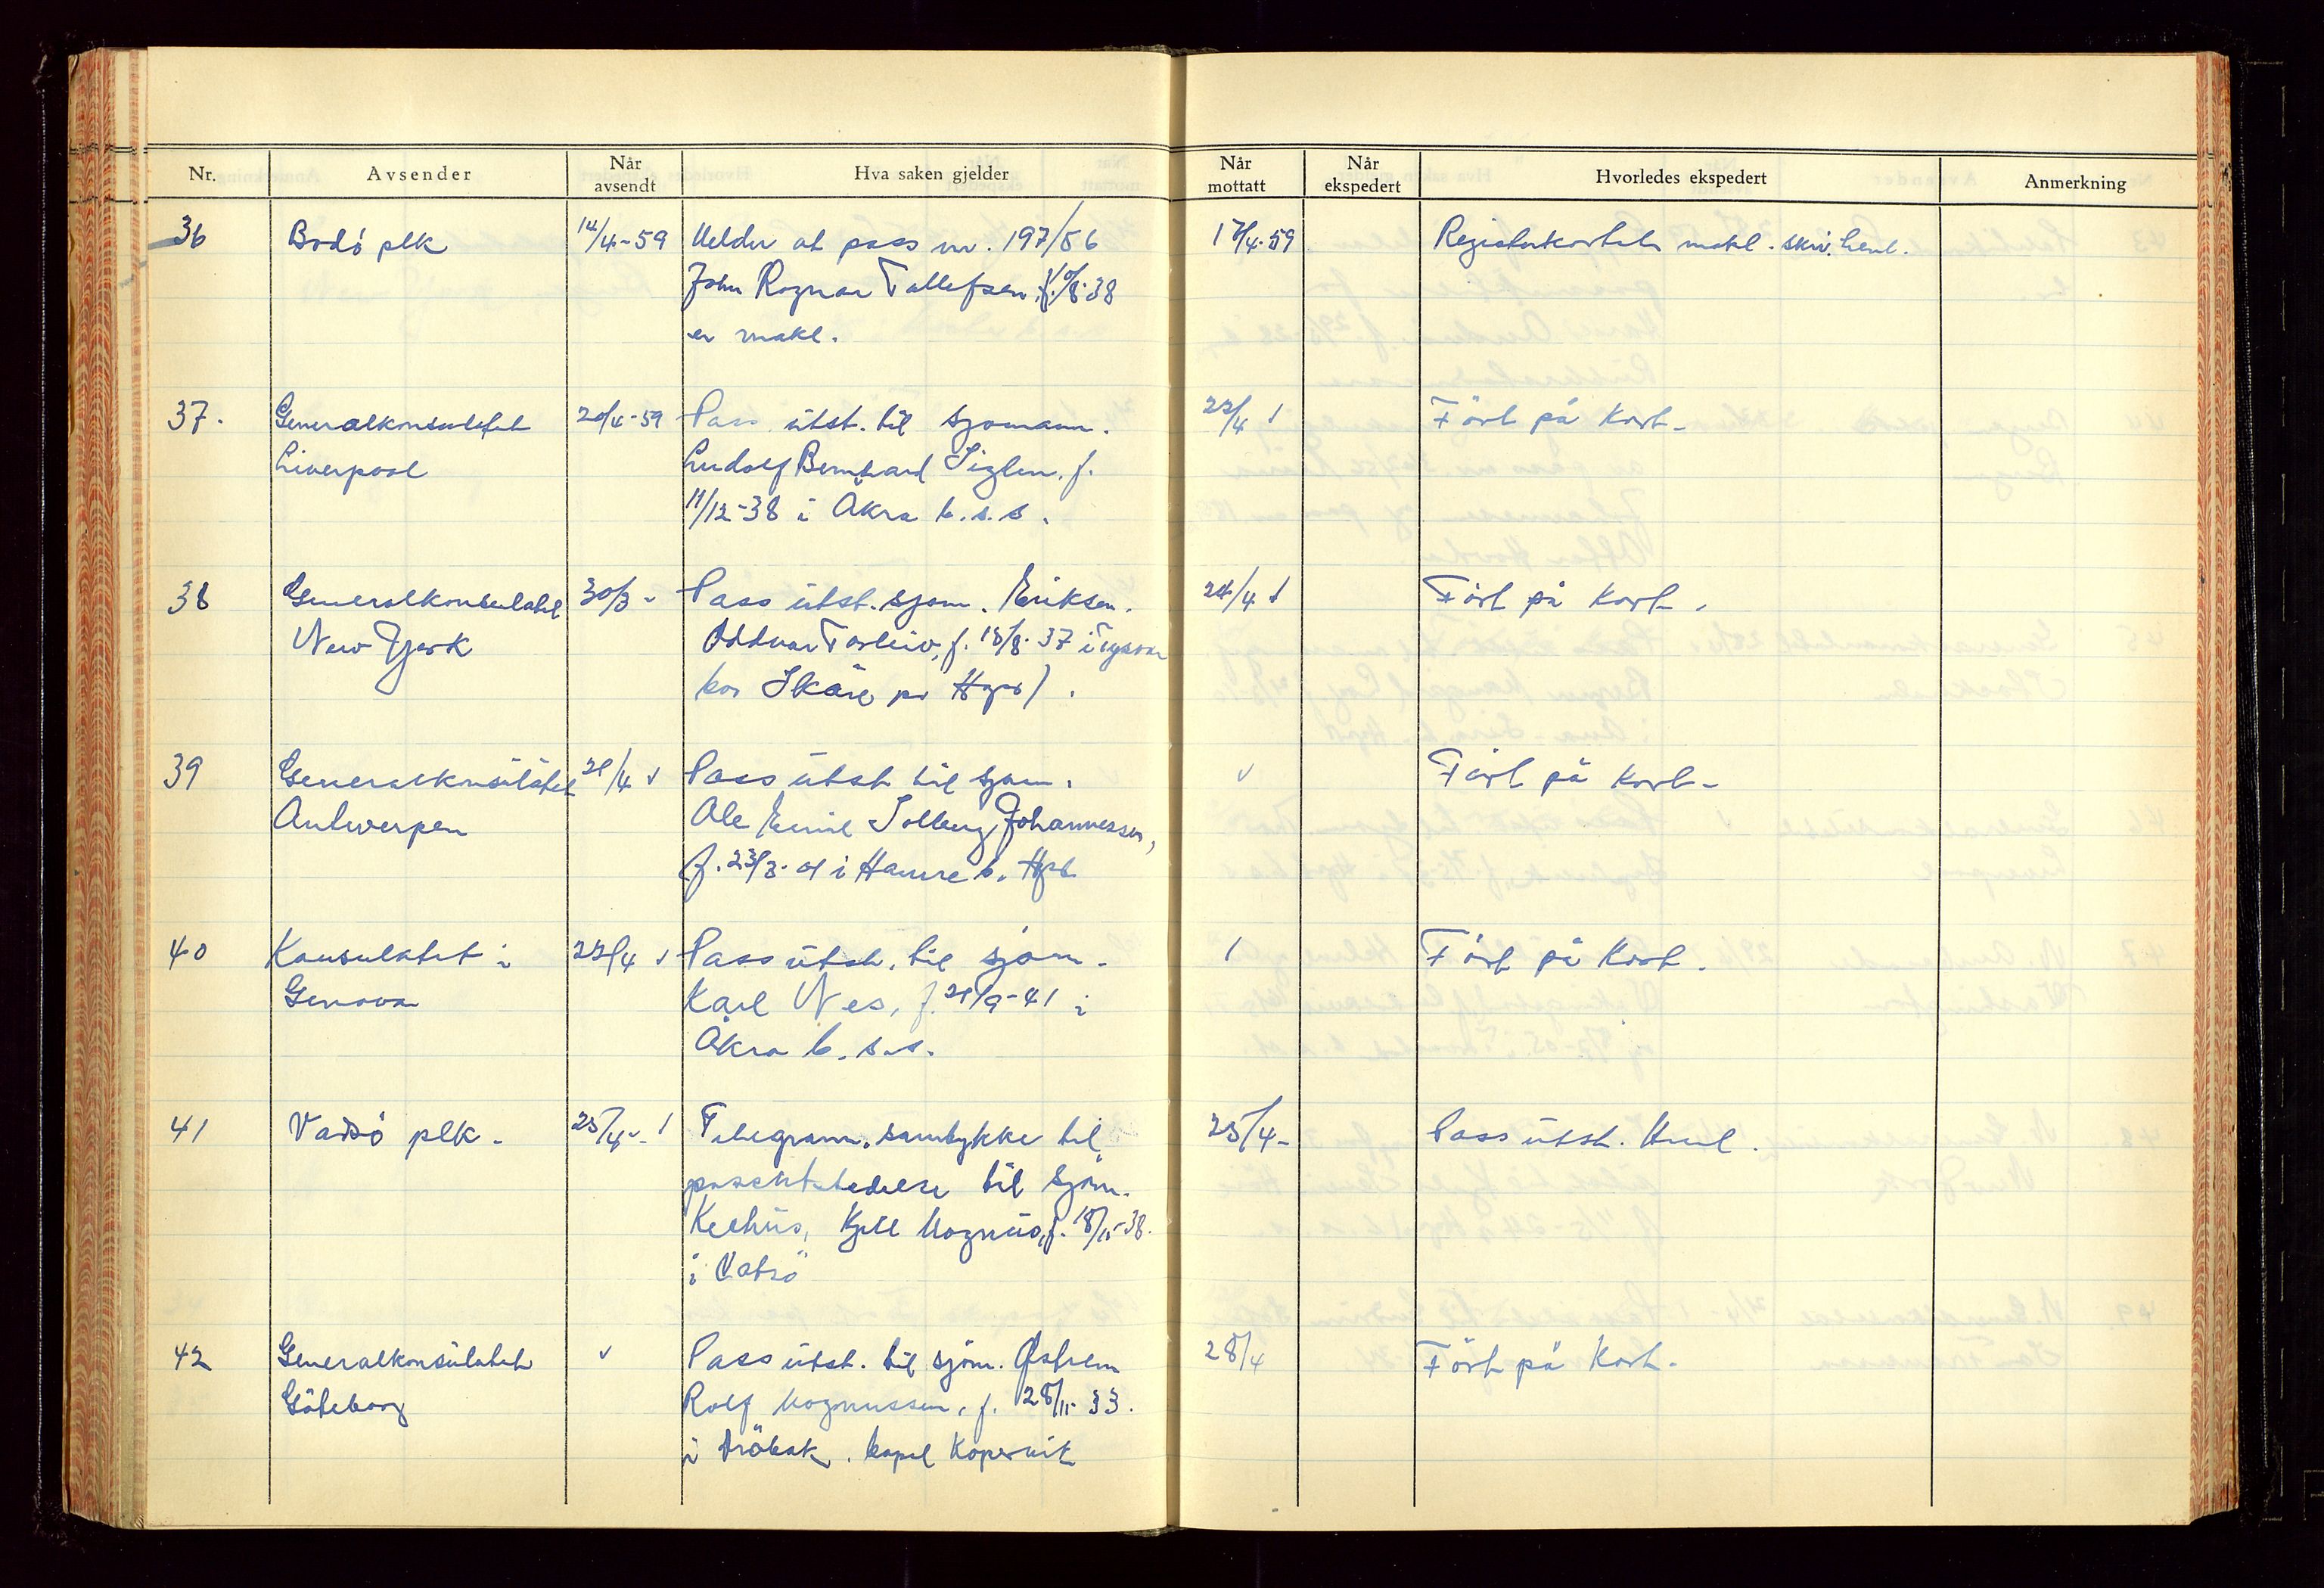 Nr. Avsender Når avsendt Hva saken gjelder Når mottatt Når ekspedert Hvorledes ekspedert Anmerkning
36 Bodö plk 14/4-59 Melder at pass nr. 197/56 17/4-59 Registerkortet makl. skriv. henl.
John Ragnar Tollefsen f. 10/8-38
er makl.
37. Generalkonsulatet 20/4-59 Pass utst. til sjømann. 22/4 Fört på Kort-
Liverpool Ludolf Bernhard f.
11/12-38 i Åkra b.s.s.
38 Generalkonsulatet 30/3 - Pass utst. sjøm. Eriksen. 24/4 Fört på Kort.
New York Oddvar Torleiv, f. 18/8-37 i Tysvær
bor Skåre pr Hgsd).
39 Generalkonsulatet 21/4 Pass utst til sjøm. Fört på Kort-
Antwerpen Ole Emil Solberg Johannessen,
f. 23/3-01 i Hamre b. Hgsd
40 Konsulatet i 22/4 Pass utst. til sjøm. Fört på Kort.
Genova Karl Nes, f. 21/9-41 i
Åkra b. s.s.
41 Vadsö plk- 25/4- Telegram. samtykke til 25/4- Pass utst. Henl.
passutstedelse til sjøm.
Kjell Magnus, f. 18/11-38.
i Vatsö
42 Generalkonsulatet Pass utst. til sjøm. Østrem 28/4 Fört på Kort-
Göteborg Rolf Magnussen, f. 28/11-33.
i Dröbak. bopel Kopervik